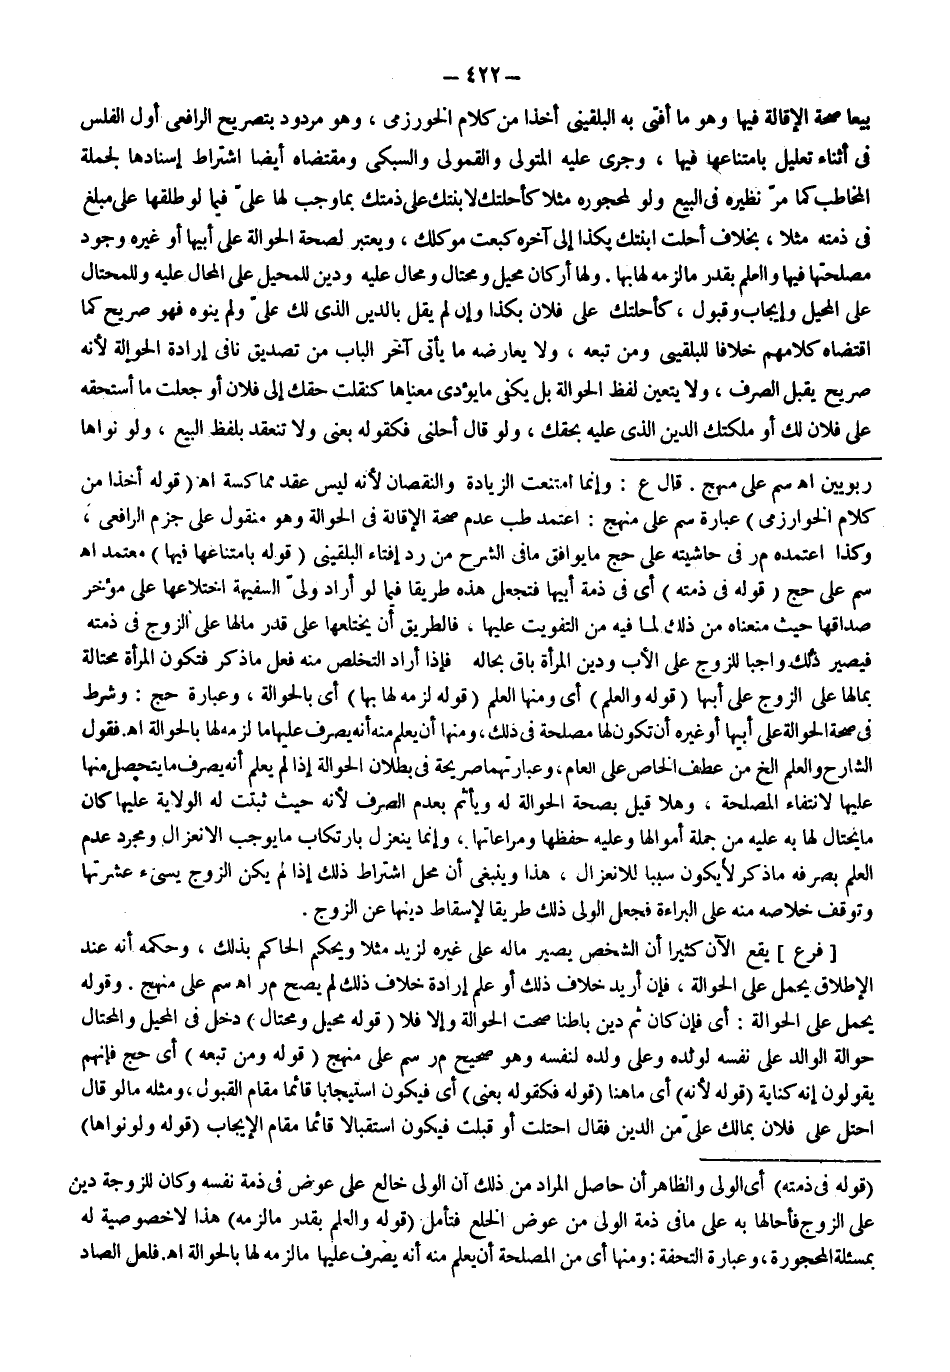 – ٤٢٢ –
بيعا صحة الإقالة فيها وهو ما أفتى به البلقينى أخذا من كلام الخورزمى ، وهو مردود بتصريح الرافعى أول الفلس
فى أثناء تعليل بامتناعها فيها ، وجرى عليه المتولى والقمولى والسبكى ومقتضاه أيضا اشتراط إسنادها لجملة
المخاطب كما مرّ نظيره فى البيع ولو لمحجوره مثلا كأحلتك لابنتك على ذمتك بما وجب لها علىّ فيما لو طلقها على مبلغ
فى ذمته مثلا ، بخلاف أحلت ابنتك بكذا إلى آخره كبعت موكلك ، ويعتبر لصحة الحوالة على أبيها أو غيره وجود
مصلحتها فيها والعلم بقدر مالزمه لها بها . ولها أركان محيل ومحتال ومحال عليه ودين للمحيل على المحال عليه وللمحتال
على المحيل وإيجاب وقبول ، كأحلتك على فلان بكذا وإن لم يقل بالدين الذى لك علىّ ولم ينوه فهو صريح كما
اقتضاه كلامهم خلافا للبلقينى ومن تبعه ، ولا يعارضه ما يأتى آخر الباب من تصديق نافى إرادة الحوالة لأنه
صريح يقبل الصرف ، ولا يتعين لفظ الحوالة بل يكفى مايؤدى معناها كنقلت حقك إلى فلان أو جعلت ما أستحقه
على فلان لك أو ملكتك الدين الذى عليه بحقك ، ولو قال أحلنى فكقوله بعنى ولا تنعقد بلفظ البيع ، ولو نواها
ربويين اه سم على منهج . قال ع : وإنما امتنعت الزيادة والنقصان لأنه ليس عقد مماكسة اه ( قوله أخذا من
كلام الخوارزمى ) عبارة سم على منهج : اعتمد طب عدم صحة الإقالة فى الحوالة وهو منقول على جزم الرافعى ،
وكذا اعتمده مر فى حاشيته على حج مايوافق مافى الشرح من رد إفتاء البلقينى ( قوله بامتناعها فيها ) معتمد اه
سم على حج ( قوله فى ذمته ) أى فى ذمة أبيها فتجعل هذه طريقا فيما لو أراد ولىّ السفيهة اختلاعها على مؤخر
صداقها حيث منعناه من ذلك لما فيه من التفويت عليها ، فالطريق أن يختلعها على قدر مالها على الزوج فى ذمته
فيصير ذلك واجبا للزوج على الأب ودين المرأة باق بحاله فإذا أراد التخلص منه فعل ماذكر فتكون المرأة محتالة
بمالها على الزوج على أبيها ( قوله والعلم ) أى ومنها العلم ( قوله لزمه لها بها ) أى بالحوالة ، وعبارة حج : وشرط
فى صحة الحوالة على أبيها أو غيره أن تكون لها مصلحة فى ذلك ، ومنها أن يعلم منه أنه يصرف عليها ما لزمه لها بالحوالة اه . فقول
الشارح والعلم الخ من عطف الخاص على العام ، وعبارتهما صريحة فى بطلان الحوالة إذا لم يعلم أنه يصرف ما يتحصل منها
عليها لانتفاء المصلحة ، وهلا قيل بصحة الحوالة له ويأثم بعدم الصرف لأنه حيث ثبتت له الولاية عليها كان
مايحتال لها به عليه من جملة أموالها وعليه حفظها ومراعاتها ، وإنما ينعزل بارتكاب مايوجب الانعزال ومجرد عدم
العلم بصرفه ماذكر لايكون سببا للانعزال ، هذا وينبغى أن محل اشتراط ذلك إذا لم يكن الزوج يسىء عشرتها
وتوقف خلاصه منه على البراءة فجعل الولى ذلك طريقا لإسقاط دينها عن الزوج .
[ فرع ] يقع الآن كثيرا أن الشخص يصير ماله على غيره لزيد مثلا ويحكم الحاكم بذلك ، وحكمه أنه عند
الإطلاق يحمل على الحوالة ، فإن أريد خلاف ذلك أو علم إرادة خلاف ذلك لم يصح مر اه سم على منهج . وقوله
يحمل على الحوالة : أى فإن كان ثم دين باطنا صحت الحوالة وإلا فلا ( قوله محيل ومحتال ) دخل فى المحيل والمحتال
حوالة الوالد على نفسه لولده وعلى ولده لنفسه وهو صحيح مر سم على منهج ( قوله ومن تبعه ) أى حج فإنهم
يقولون إنه كناية (قوله لأنه) أى ماهنا (قوله فكقوله بعنى) أى فيكون استيجابا قائما مقام القبول ، ومثله مالو قال
احتل على فلان بمالك علىّ من الدين فقال احتلت أو قبلت فيكون استقبالا قائما مقام الإيجاب (قوله ولو نواها)
(قوله فى ذمته) أى الولى والظاهر أن حاصل المراد من ذلك أن الولى خالع على عوض فى ذمة نفسه وكان للزوجة دين
على الزوج فأحالها به على مافى ذمة الولى من عوض الخلع فتأمل (قوله والعلم بقدر مالزمه) هذا لاخصوصية له
بمسئلة المحجورة ، وعبارة التحفة : ومنها أى من المصلحة أن يعلم منه أنه يصرف عليها مالزمه لها بالحوالة اه . فلعل الصاد